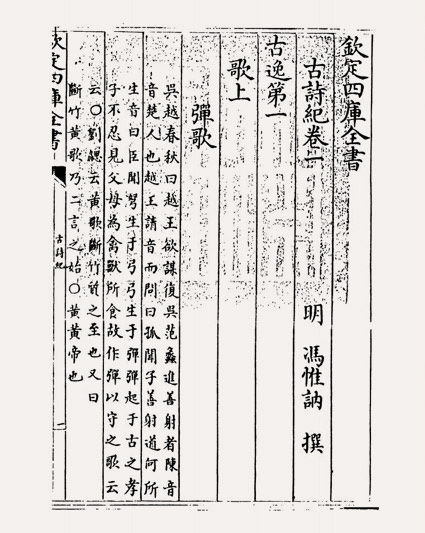 欽定四庫全書
古詩紀卷一
明 馮惟訥 撰
古逸第一
歌上
彈歌
吳越春秋曰越王欲謀復吳范蠡進善射者陳音
音楚人也越王請音而問曰孤聞子善射道何所
生音曰臣聞弩生于弓弓生于彈彈起于古之孝
子不忍見父母為禽獸所食故作彈以守之歌云
云〇劉勰云黃歌斷竹質之至也又曰
斷竹黃歌乃二言之始〇黃黃帝也
欽定四庫全書
古詩紀
一